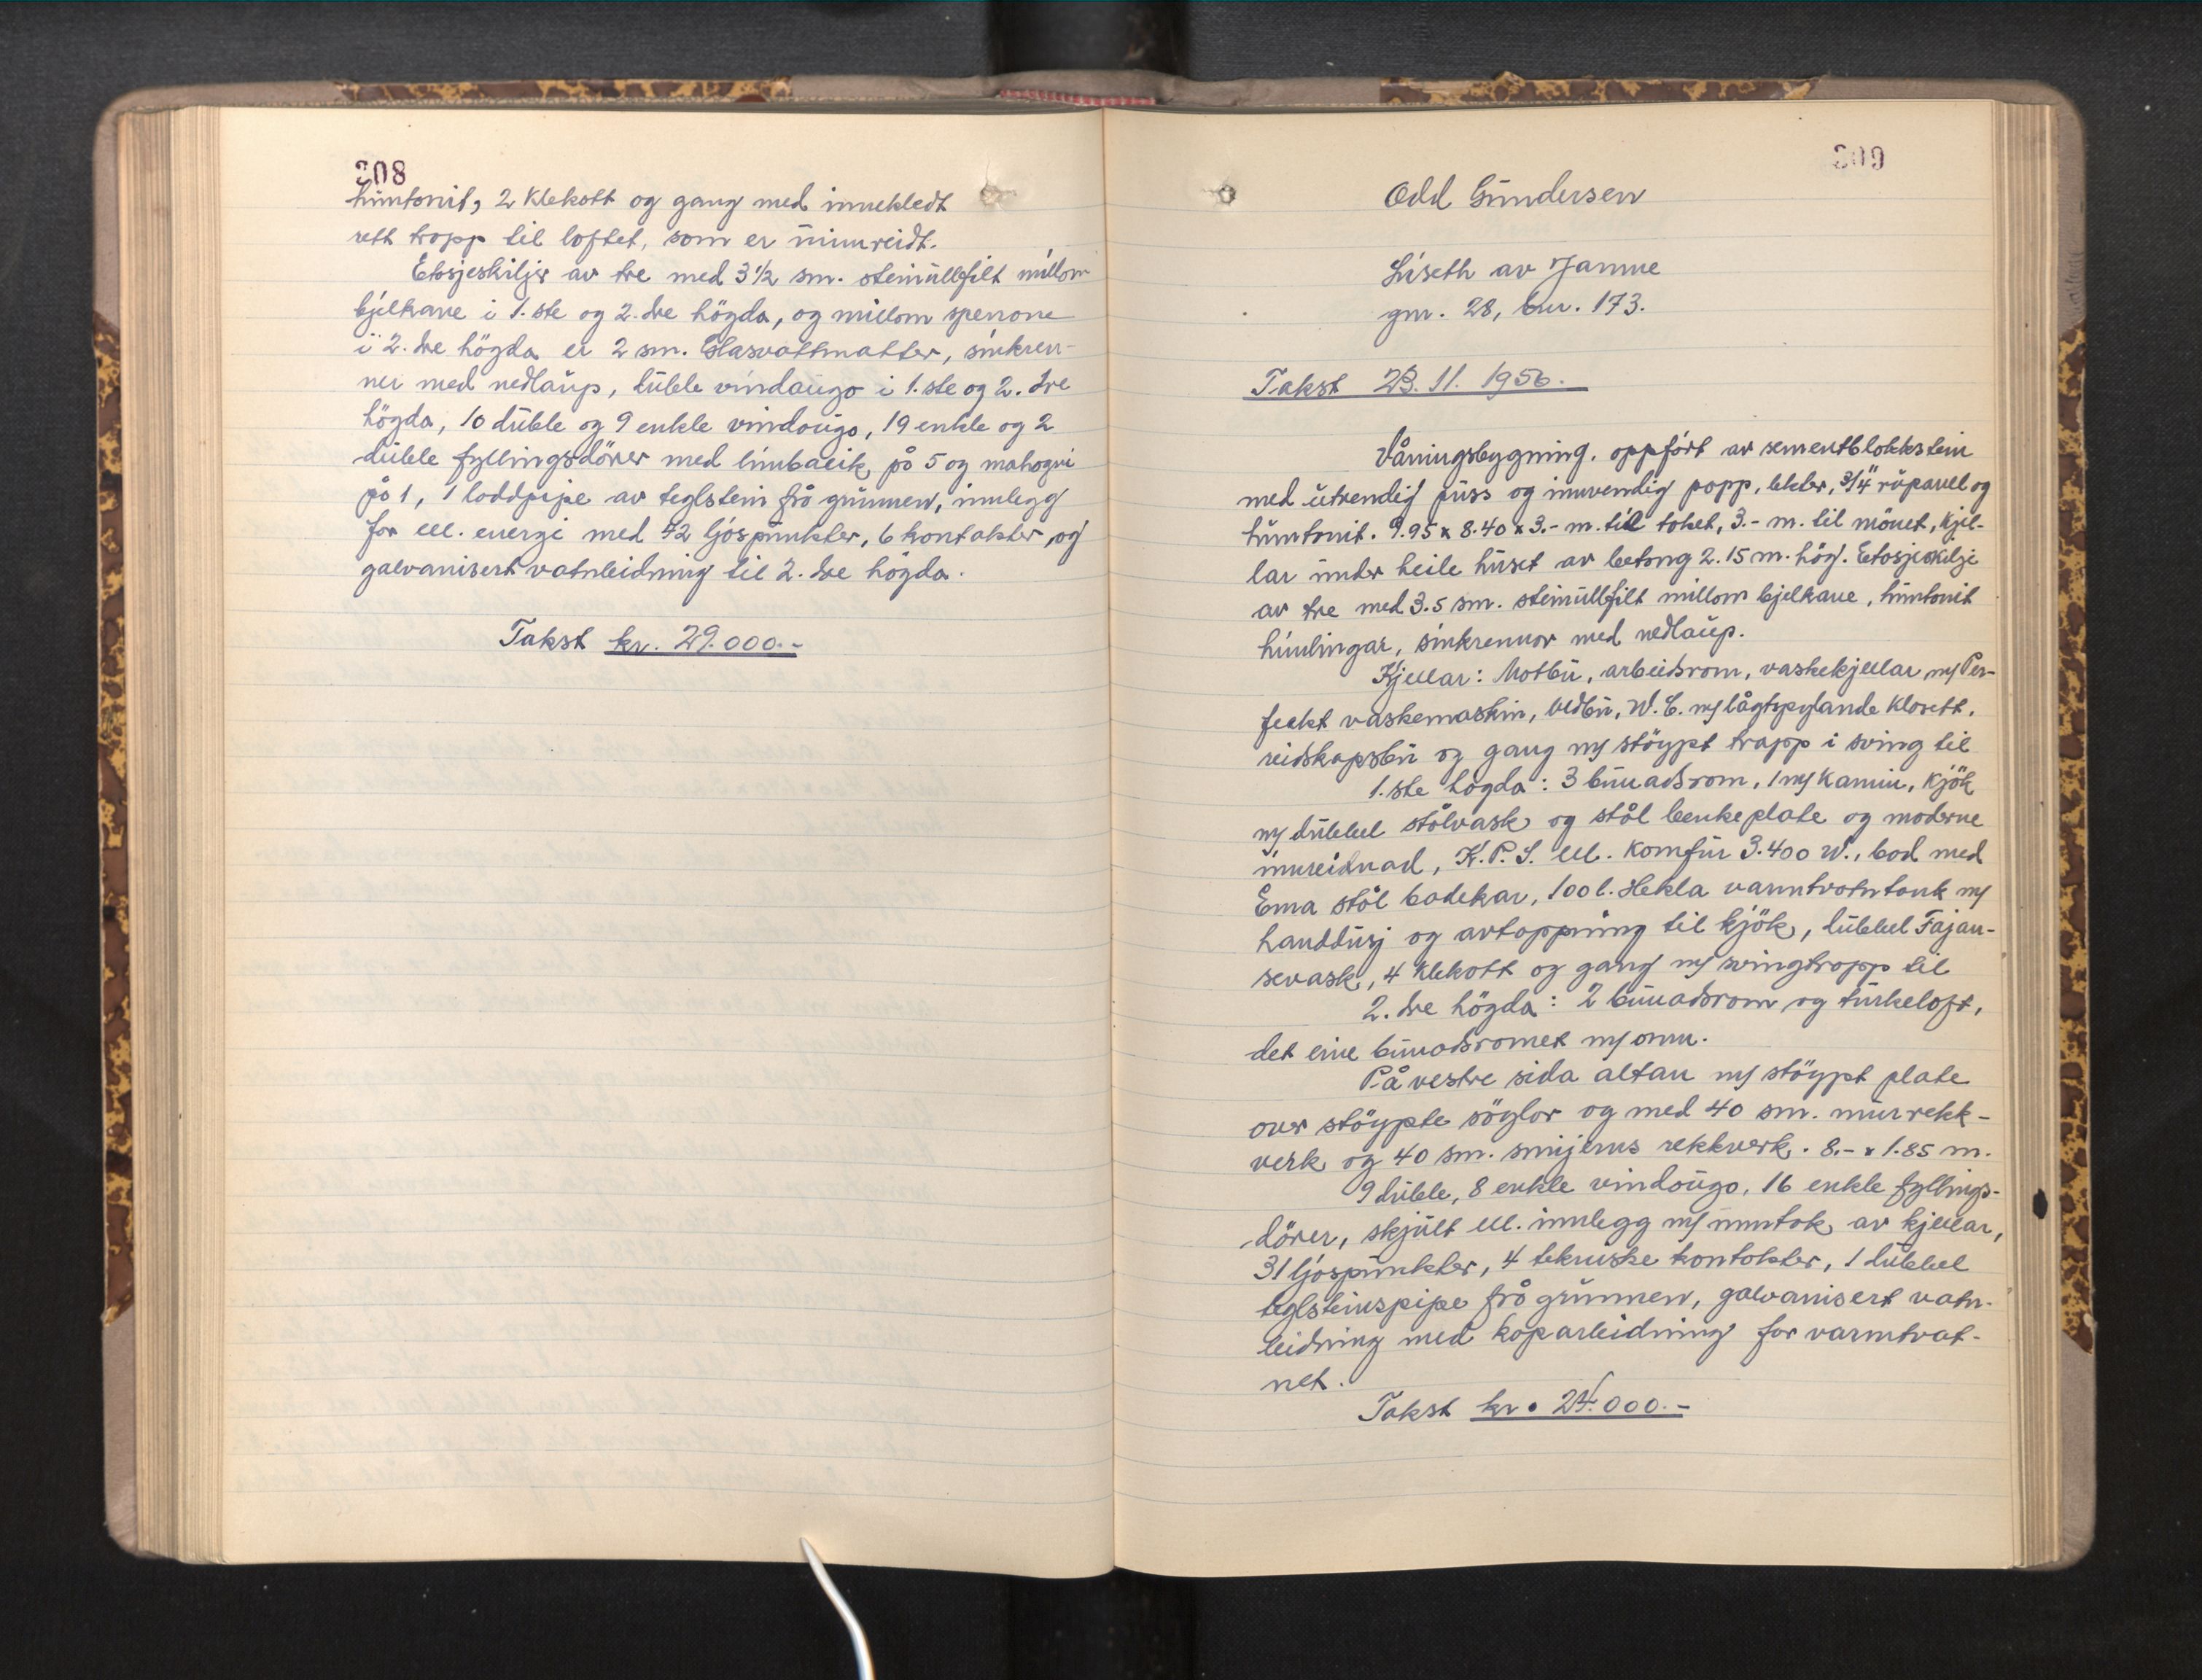 208
huntonit, 2 klekott og gang med innekledt
rett tropp til loftet, som er uinnreidt.
Etasjeskilje av tre med 3½ sm. steinullfilt millom
bjelkane i 1.ste og 2.dre högda, og millom sperrone
i 2.dre högda er 2 sm. Glasvattmatter, sinkren-
ner med nedlaup, duble vindaugo i 1.ste og 2.dre
högda, 10 duble og 9 enkle vindaugo, 19 enkle og 2
duble fyllingsdörer med limbaeik på 5 og mahogni
på 1, 1 loddpipe av teglstein frå grunnen, innlegg
for ell. energi med 42 ljóspunkter, 6 kontakter, og
galvanisert vatnleidning til 2.dre högda.
Takst kr. 29.000.-
209
Odd Gundersen
Liseth av Jamne
gnr. 28, bnr. 173.
Takst 23.11.1956.
Våningsbygning, oppfört av sementblokkstein
med utvendig puss og innvendig papp, lekter, 3/4" rupanel og
huntonit. 9.95 x 8.40 x 3.- m. til taket, 3.- m. til mönet, kjel-
lar under heile huset av betong 2.15 m. hög. Etasjeskilje
av tre med 3.5 sm. steinullfilt millom bjelkane, huntonit
himlingar, sinkrennor med nedlaup.
Kjellar: Matbu, arbeidsrom, vaskekjellar m/ Per-
fekt vaskemaskin, vedbu, W.C. m/ lågtspylande klosett,
reidskapsbu og gang m/ stöypt trapp i sving til
1.ste högda: 3 buuadsrom, 1 m/ kamin, kjök
m/ dubbel stålvask og stål benkeplate og moderne
innreidnad, K.P.S. ell. komfur 3.400 W., bad med
Ema stål badekar, 100 l. Hekla varmtvatntank m/
handdusj og avtapping til kjök, dubbel Fajan-
sevask, 4 klekott og gang m/ svingtropp til
2.dre högda: 2 buuadsrom og turkeloft,
det eine buuadsromet m/ omn.
På vestre sida altan m/ stöypt plate
over stöypte söylor og med 40 sm. murrekk-
verk og 40 sm. smijerns rekkverk. 8.- x 1.85 m.
9 duble, 8 enkle vindaugo, 16 enkle fyllings-
dörer, skjult ell. innlegg m/ inntak av kjellar,
31 ljóspunkter, 4 tekniske kontakter, 1 dubbel
teglsteinspipe frå grunnen, galvanisert vatn-
leidning med koparleidning for varmtvat-
net.
Takst kr. 24.000.-